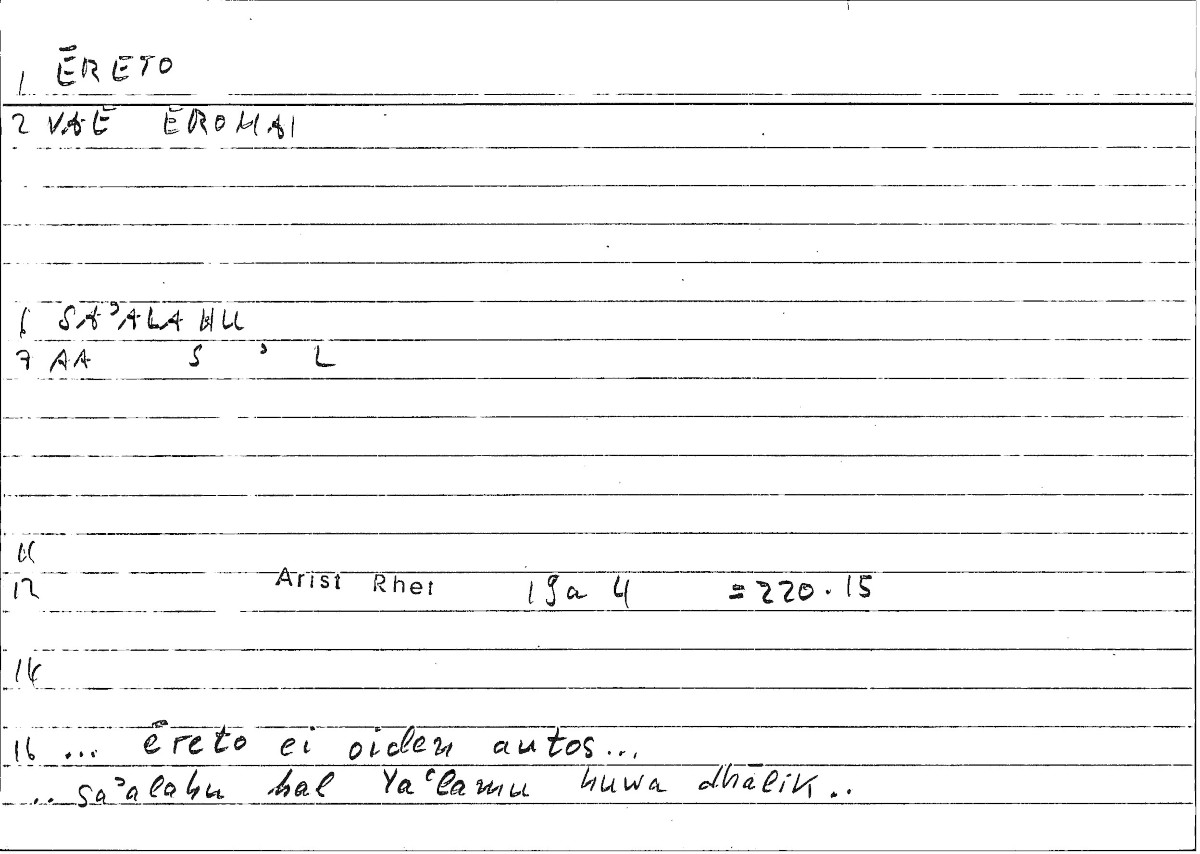 1 ĒRETO
2 VAE ĒROMAI
6 SAʾALAHU
7 AA S ʾ L
11
12 Arist Rhet 19a 4 =220.15
14
16 ... ēreto ei oiden autos...
.. saʾalahu hal Yaʿlamu huwa dhālik..